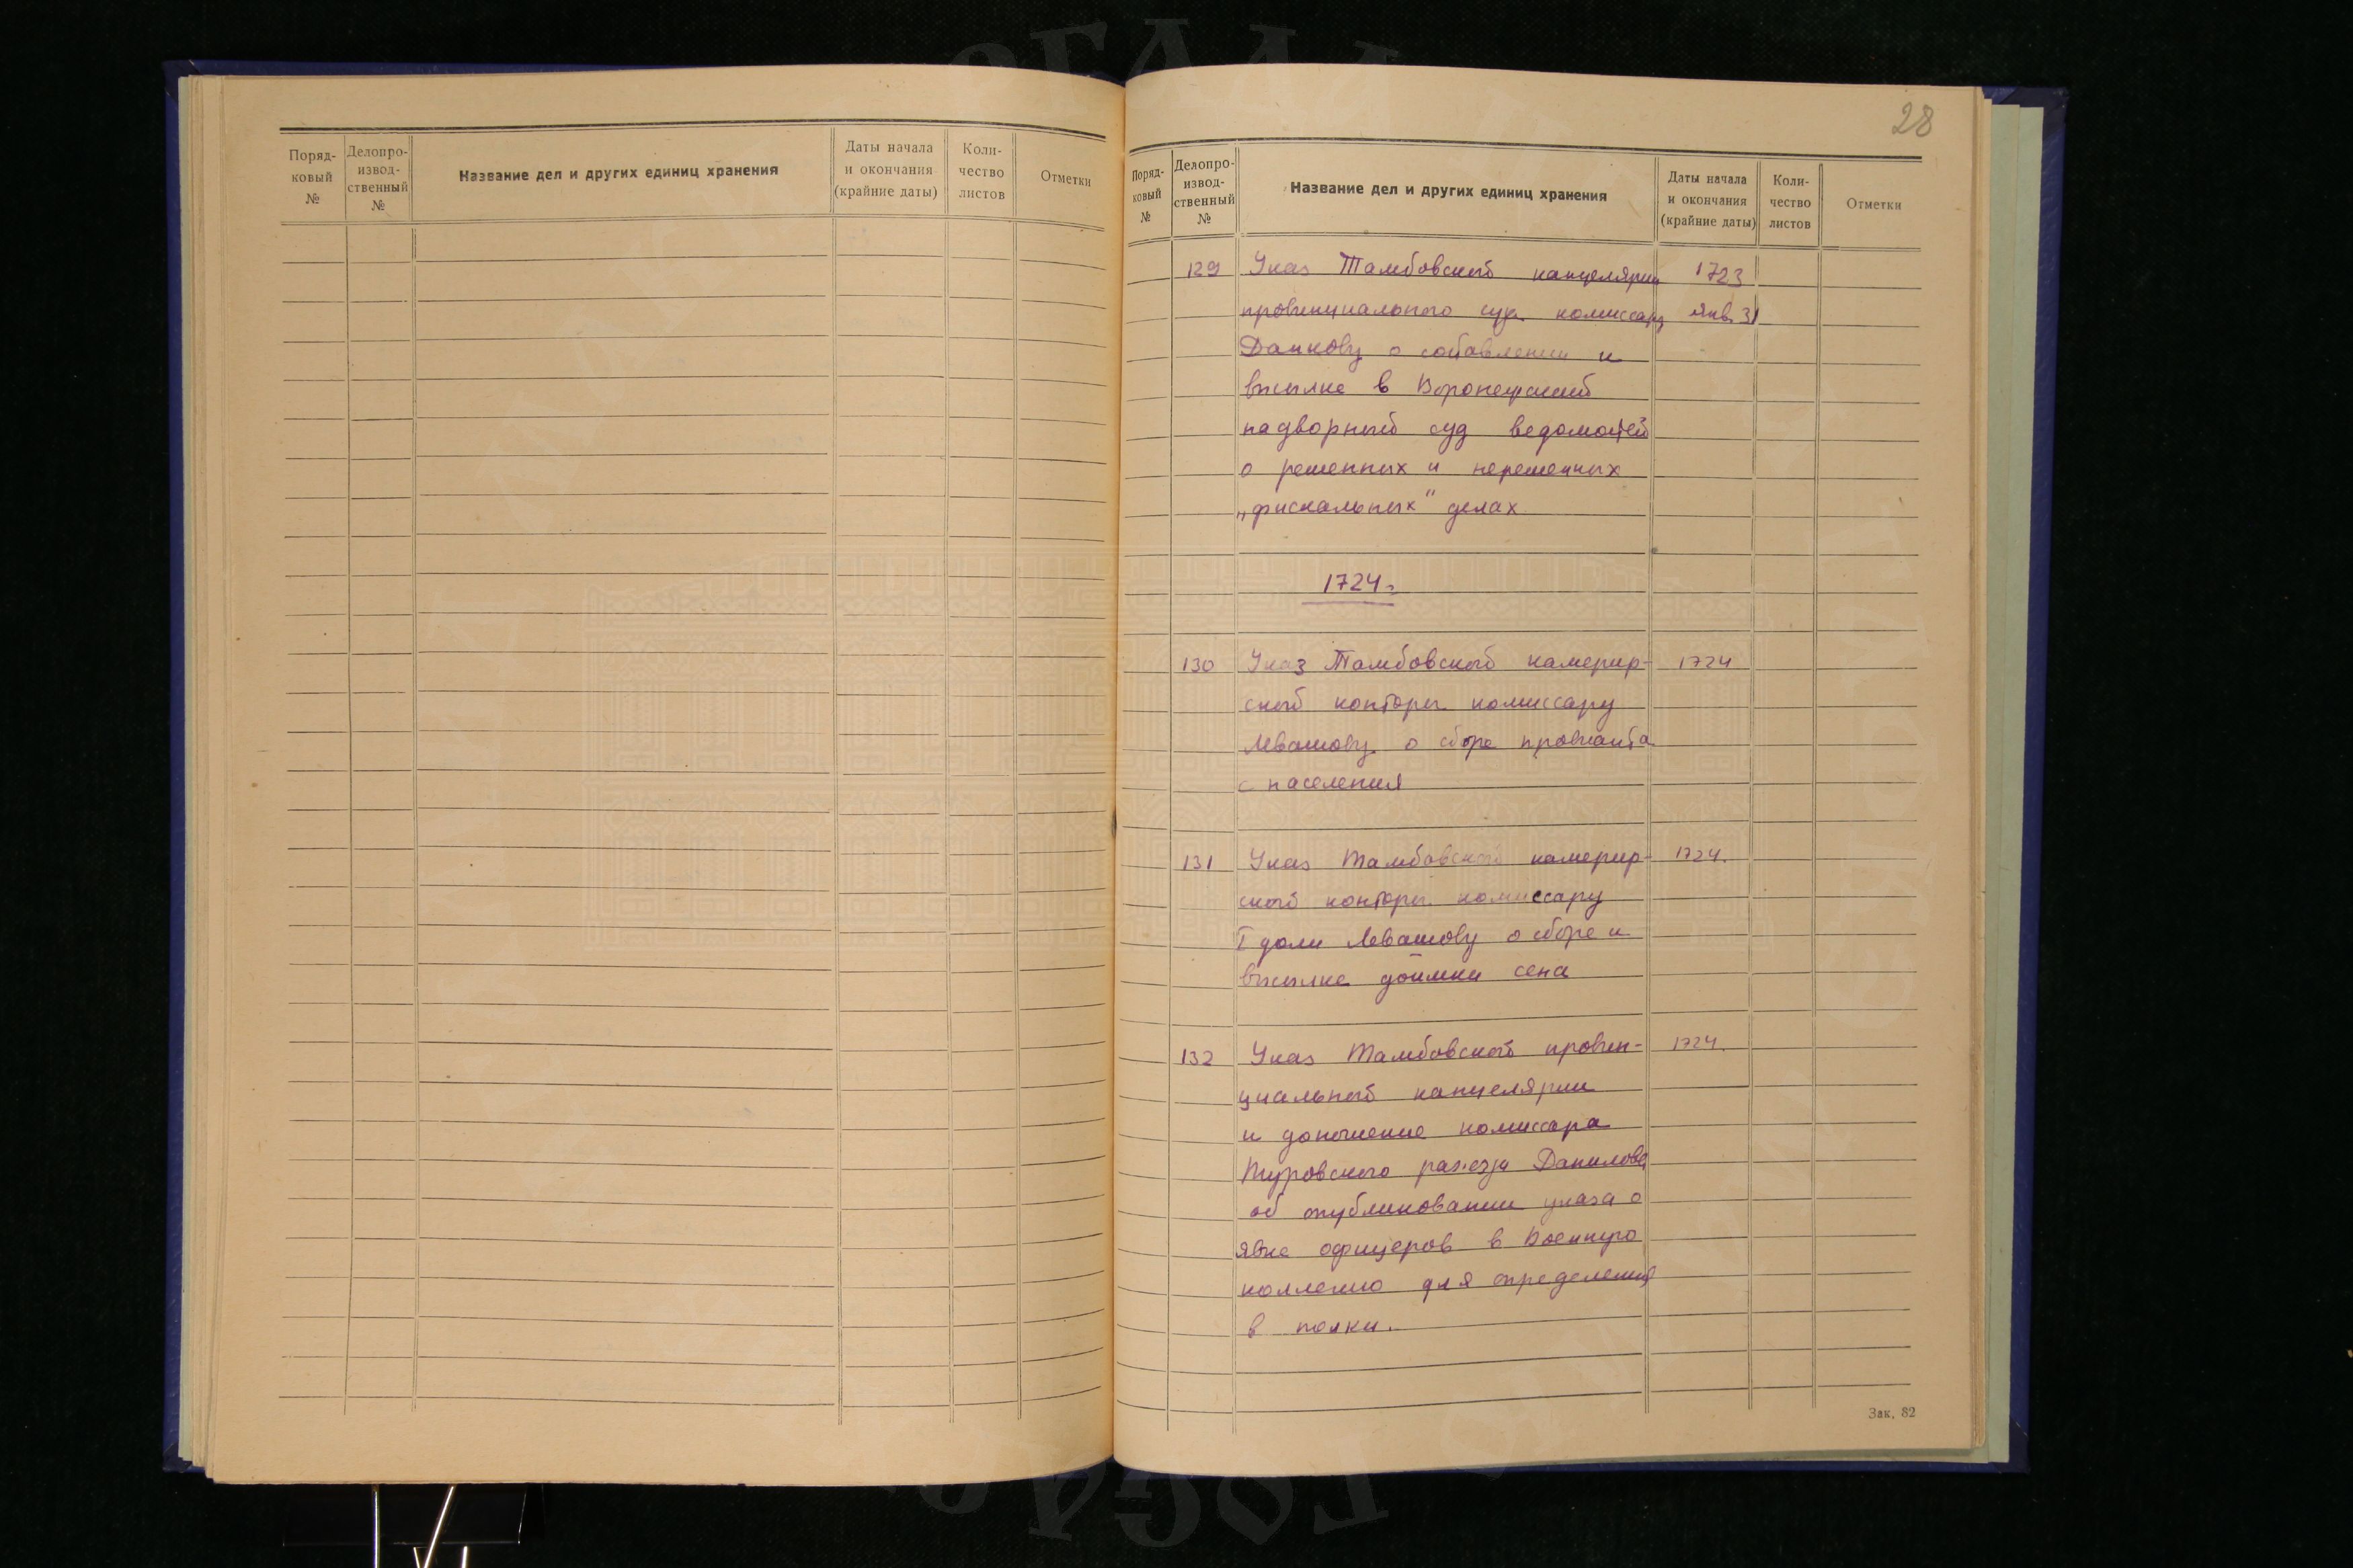 28
Поряд-
ковый
№
Делопро-
извод-
ственный
№
Название дел и других единиц хранения
Даты начала
и окончания
(крайние даты)
Коли-
чество
листов
Отметки
Поряд-
ковый
№
Делопро-
извод-
ственный
№
Название дел и других единиц хранения
Даты начала
и окончания
(крайние даты)
Коли-
чество
листов
Отметки
129 Указ Тамбовской канцелярии 1723
провинциального суда комиссару янв. 31
Данкову о составлении и
высылке в Воронежский
надворный суд ведомостей
о решенных и нерешенных
„фискальных" делах
1724 г.
130 Указ Тамбовской камерир- 1724
ской конторы комиссару
Левашову о сборе провианта
с населения
131 Указ Тамбовской камерир- 1724.
ской конторы комиссару
I доли Левашову о сборе и
высылке доимки сена
132 Указ Тамбовской провин- 1724.
циальной канцелярии
и доношение комиссара
Данилова
об опубликовании указа о
явке офицеров в Военную
коллегию для определения
в полки.
Зак. 82